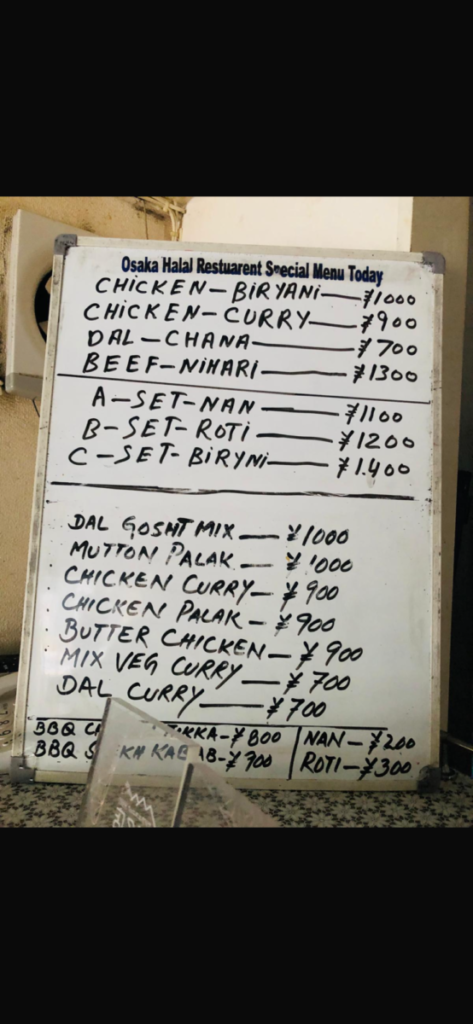 Osaka Halal Restuarent Special Menu Today
CHICKEN-BIRYANI-¥1000
CHICKEN-CURRY-¥900
DAL-CHANA-¥700
BEEF-NIHARI-¥1300
A-SET-NAN-¥1100
B-SET-ROTI-¥1200
C-SET-BIRYNI-¥1.400
DAL GOSHT MIX-¥1000
MUTTON PALAK-¥1000
CHICKEN CURRY-¥900
CHICKEN PALAK-¥900
BUTTER CHICKEN-¥900
MIX VEG CURRY-¥700
DAL CURRY-¥700
BBQ TIKKA-¥800
BBQ KABAB-¥700
NAN-¥200
ROTI-¥300